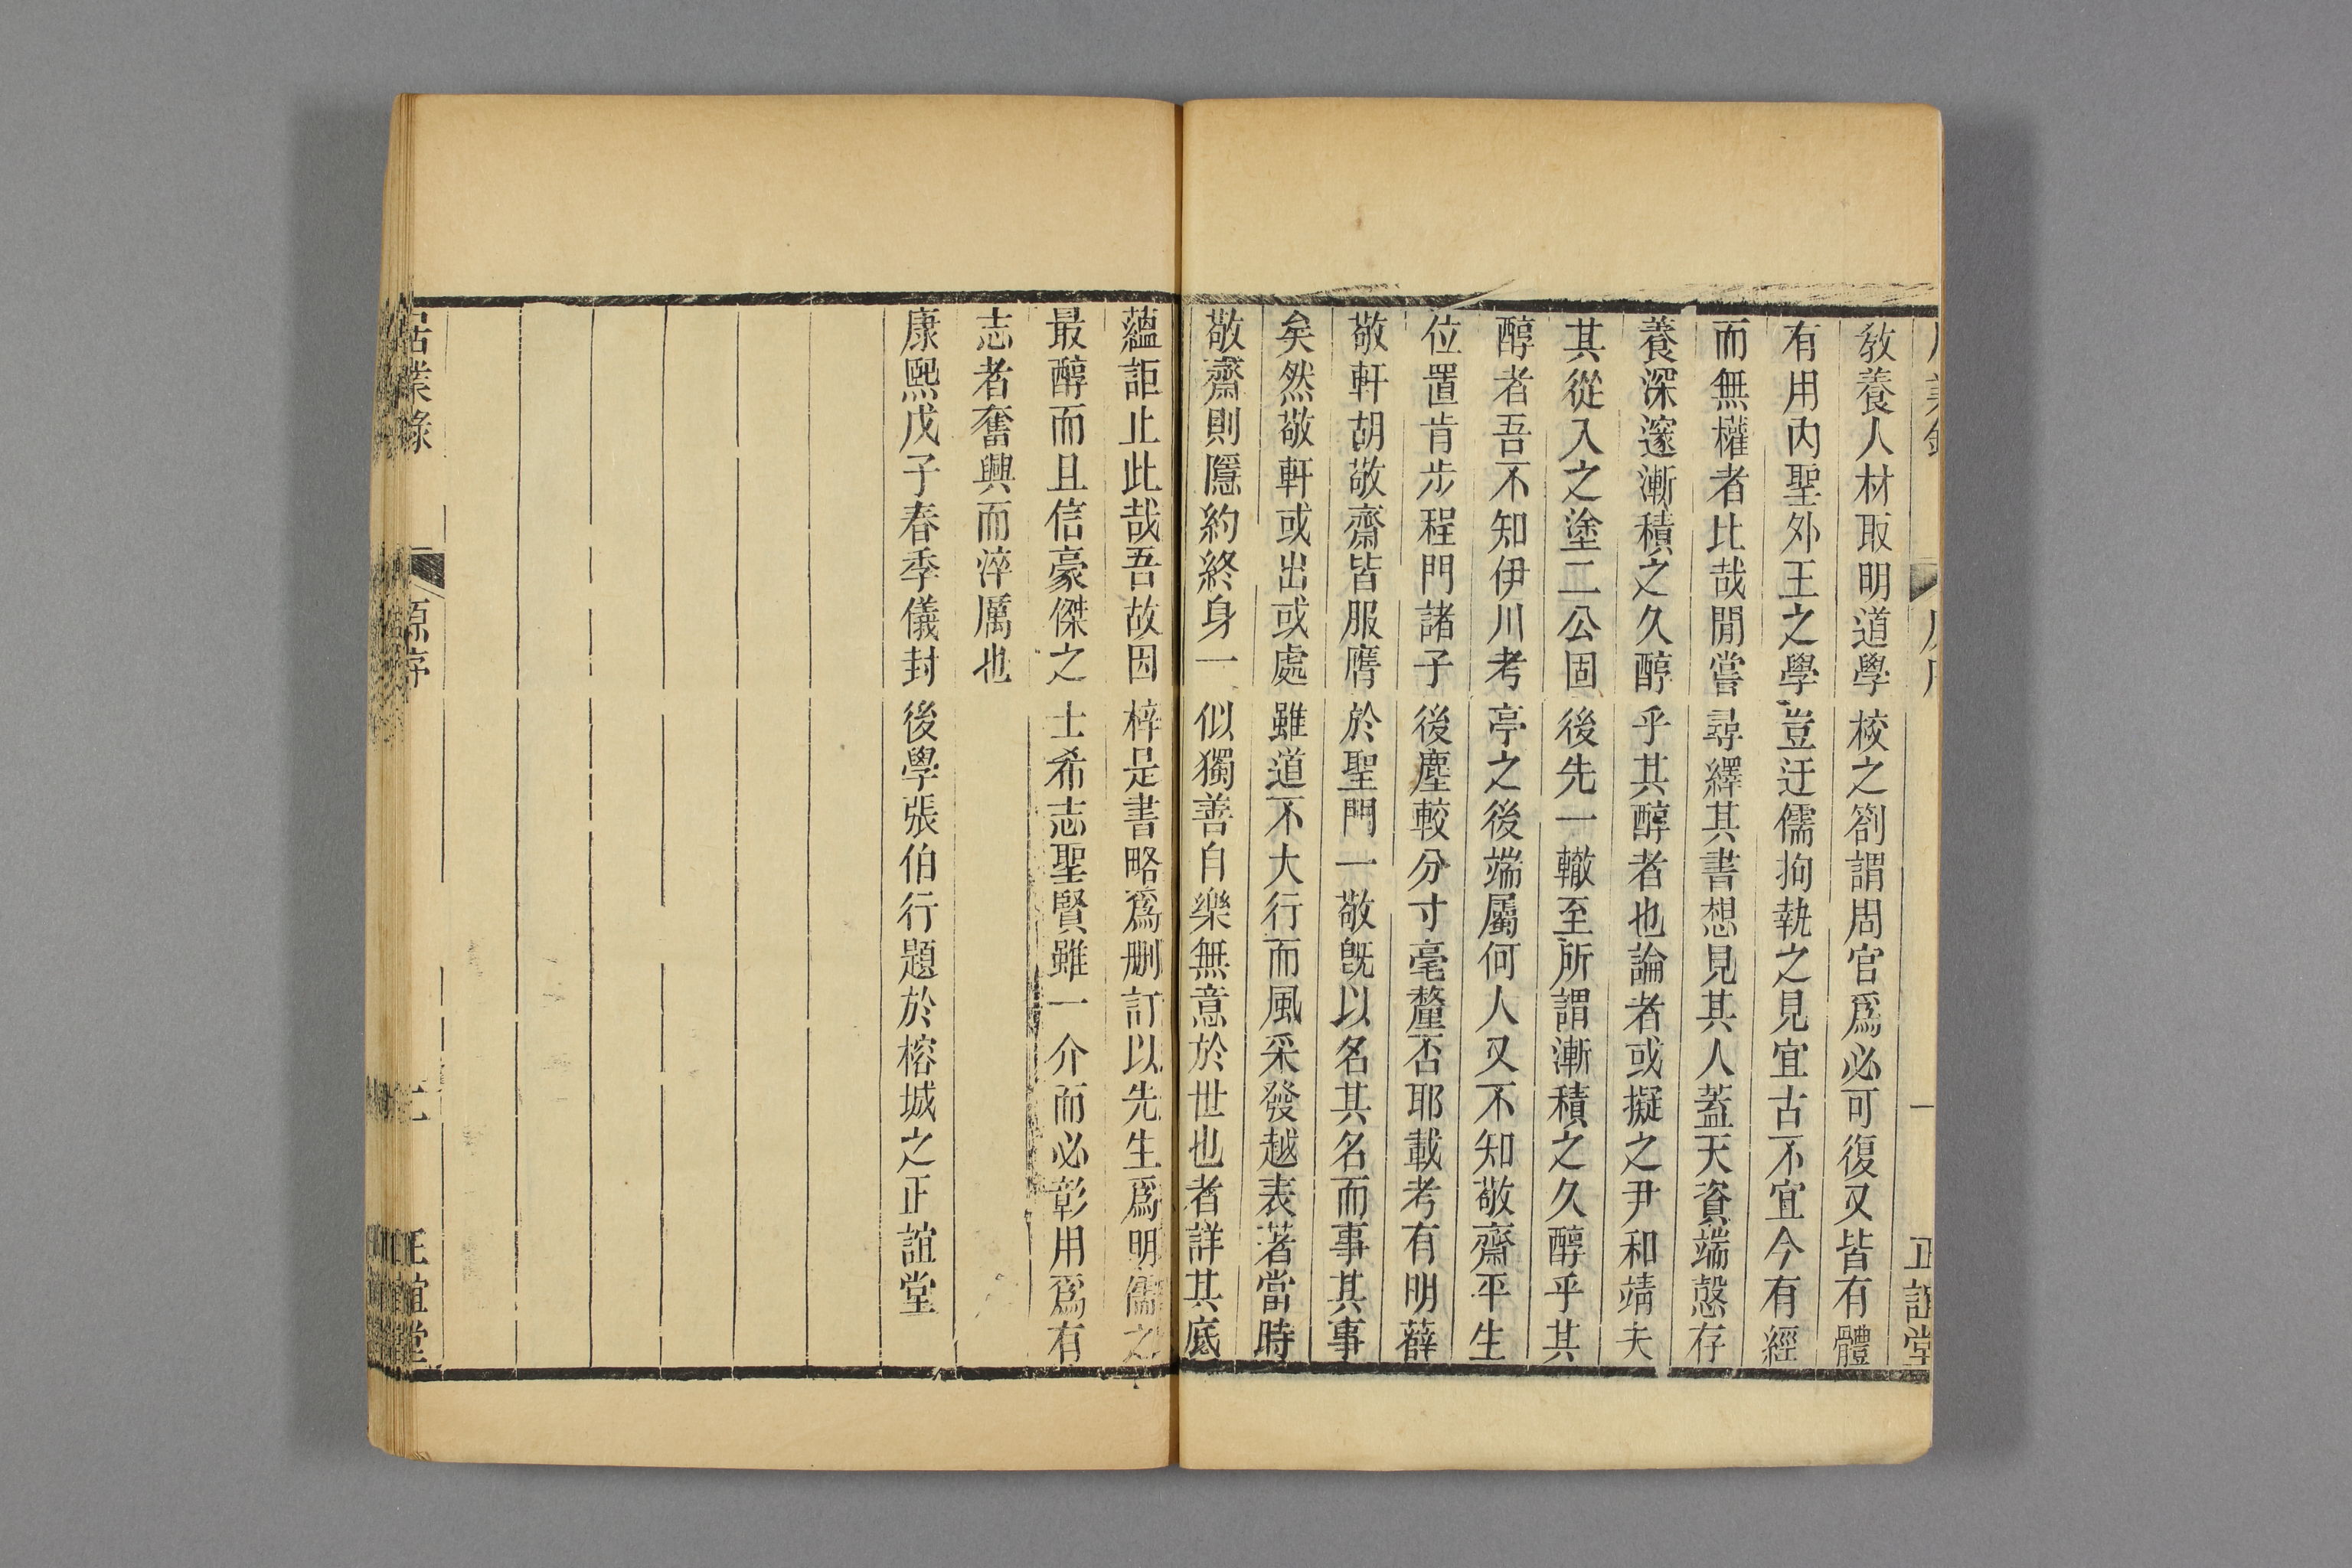 教養人材取明道學校之劄謂周官爲必可復又皆有體
有用内聖外王之學豈迂儒拘執之見宜古不宜今有經
而無權者比哉閒嘗尋繹其書想見其人蓋天資端慤存
養深邃漸積之久醇乎其醇者也論者或擬之尹和靖夫
其從入之塗二公固後先一轍至所謂漸積之久醇乎其
醇者吾不知伊川考亭之後端屬何人又不知敬齋平生
位置肯步程門諸子後塵較分寸毫釐否耶載考有明薛
敬軒胡敬齋皆服膺於聖門一敬旣以名其名而事其事
矣然敬軒或出或處雖道不大行而風采發越表著當時
敬齋則隱約終身一似獨善自樂無意於世也者詳其底
蘊詎止此哉吾故因梓是書略爲删訂以先生爲明儒之
最醇而且信豪傑之士希志聖賢雖一介而必彰用爲有
志者奮興而淬厲也
康熙戊子春季儀封後學張伯行題於榕城之正誼堂
居業錄
原序
正誼堂